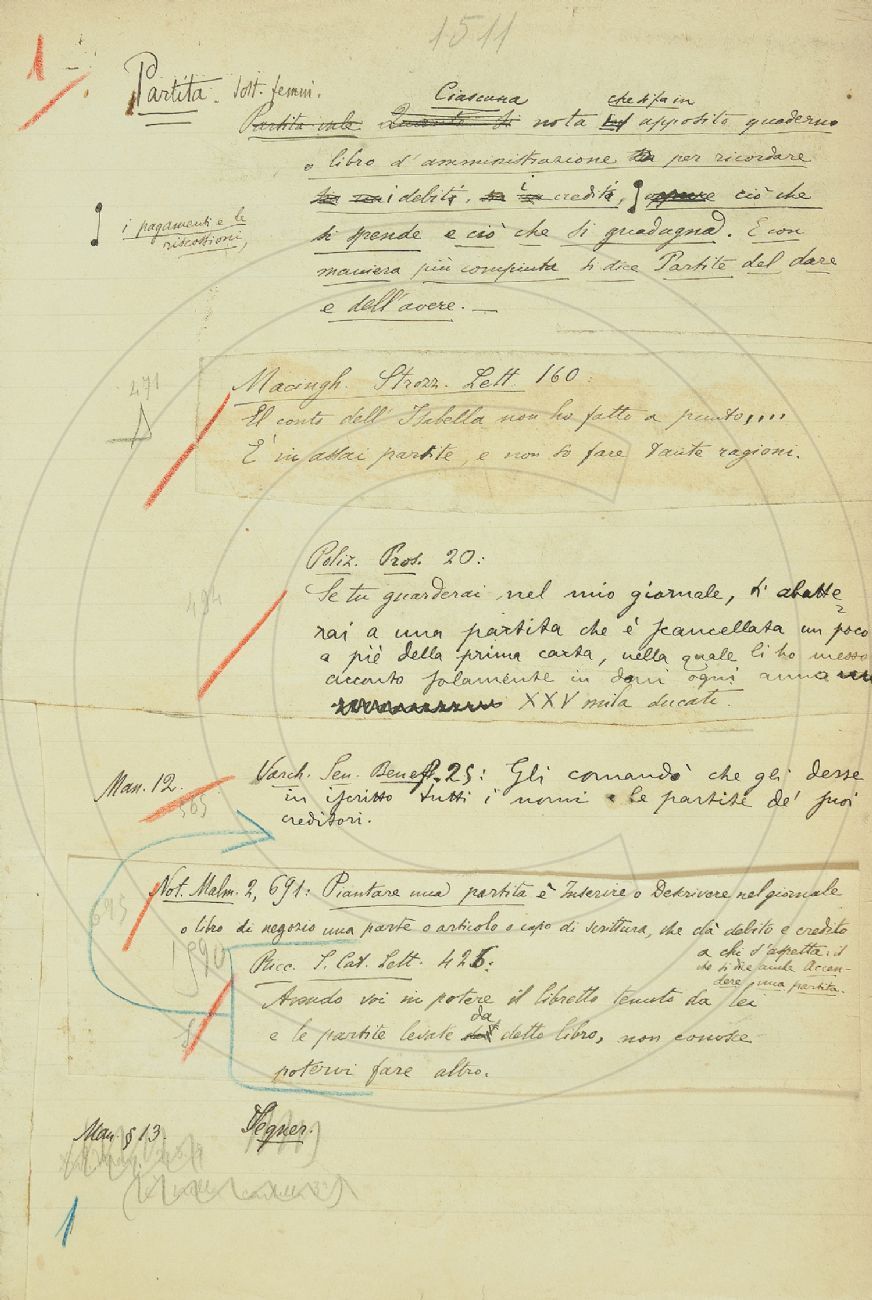 1511
1
Partita. Sost. femmi.
Ciascuna che si fa in
Partita vale Quanto si nota in apposito quaderno
o libro d'amministrazione per ricordare
i debiti, i crediti, oppure ciò che
i pagamenti e le
riscossioni,
si spende e ciò che si guadagna. E con
maniera più compiuta si dice Partite del dare
e dell'avere. —
471
Macingh. Strozz. Lett. 160:
El conto dell'Isabella non ho fatto a punto....
È in assai partite, e non so fare tante ragioni.
494
Poliz. Pros. 20:
Se tu guarderai nel mio giornale, ti abatte
rai a una partita che è scancellata un poco
a piè della prima carta, nella quale li ho messo
acconto solamente in doni ogni anno
XXV mila ducati.
Man. 12.
565
Varch. Sen. Benef. 25: Gli comandò che gli desse
in iscritto tutti i nomi e le partite de' suoi
creditori.
695
Not. Malm. 2, 691: Piantare una partita è Inscrive o Descrivere nel giornale
o libro di negozio una parte o articolo o capo di scrittura, che dà debito e credito
a chi s'aspetta: il
che si dice anche Accen-
dere una partita.
1590
Ricc. S. Cat. Lett. 426:
Avendo voi in potere il libretto tenuto da lei
e le partite levate da detto libro, non conosce
potervi fare altro.
Man. § 13.
Segner.
1